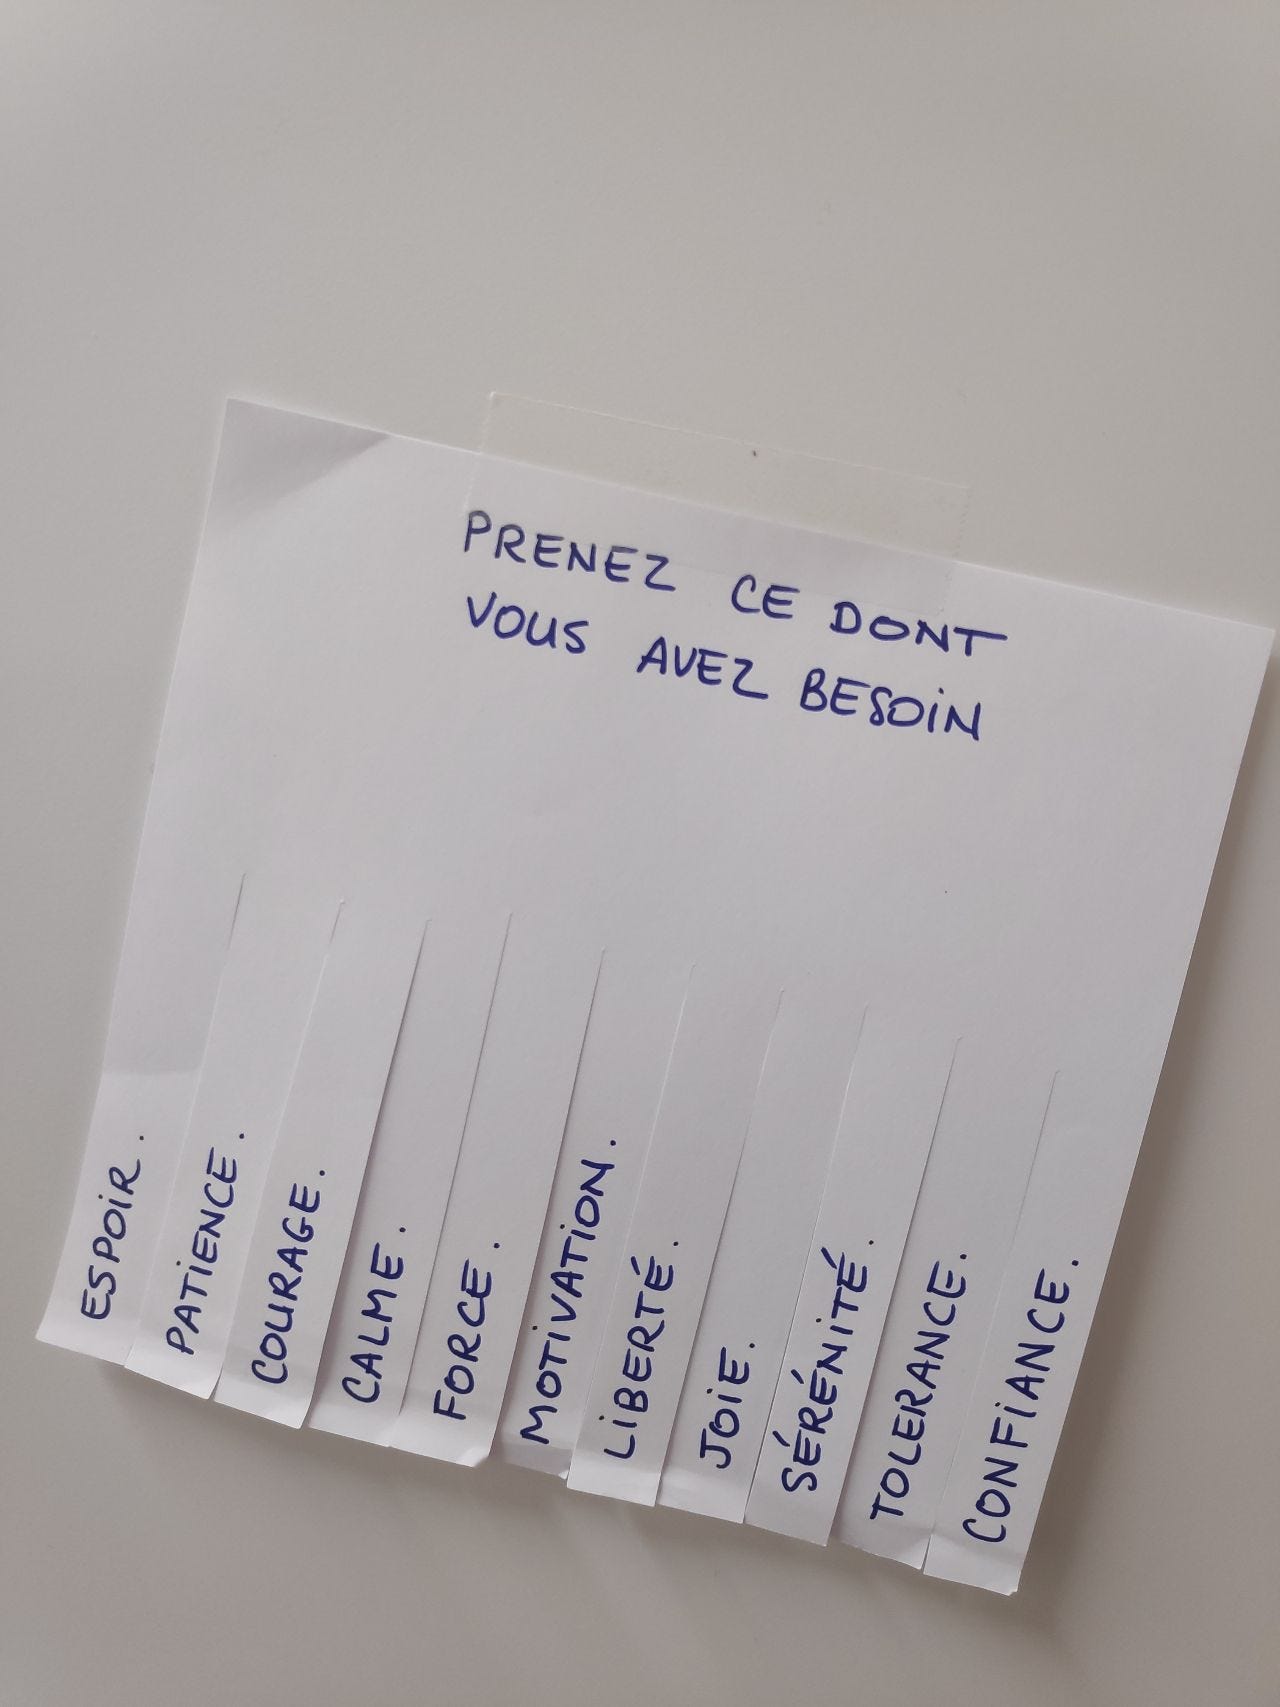 PRENEZ CE DONT
VOUS AVEZ BESOIN
ESPOIR.
PATIENCE.
COURAGE.
CALME.
FORCE.
MOTIVATION.
LIBERTÉ.
JOIE.
SÉRÉNITÉ.
TOLERANCE.
CONFIANCE.